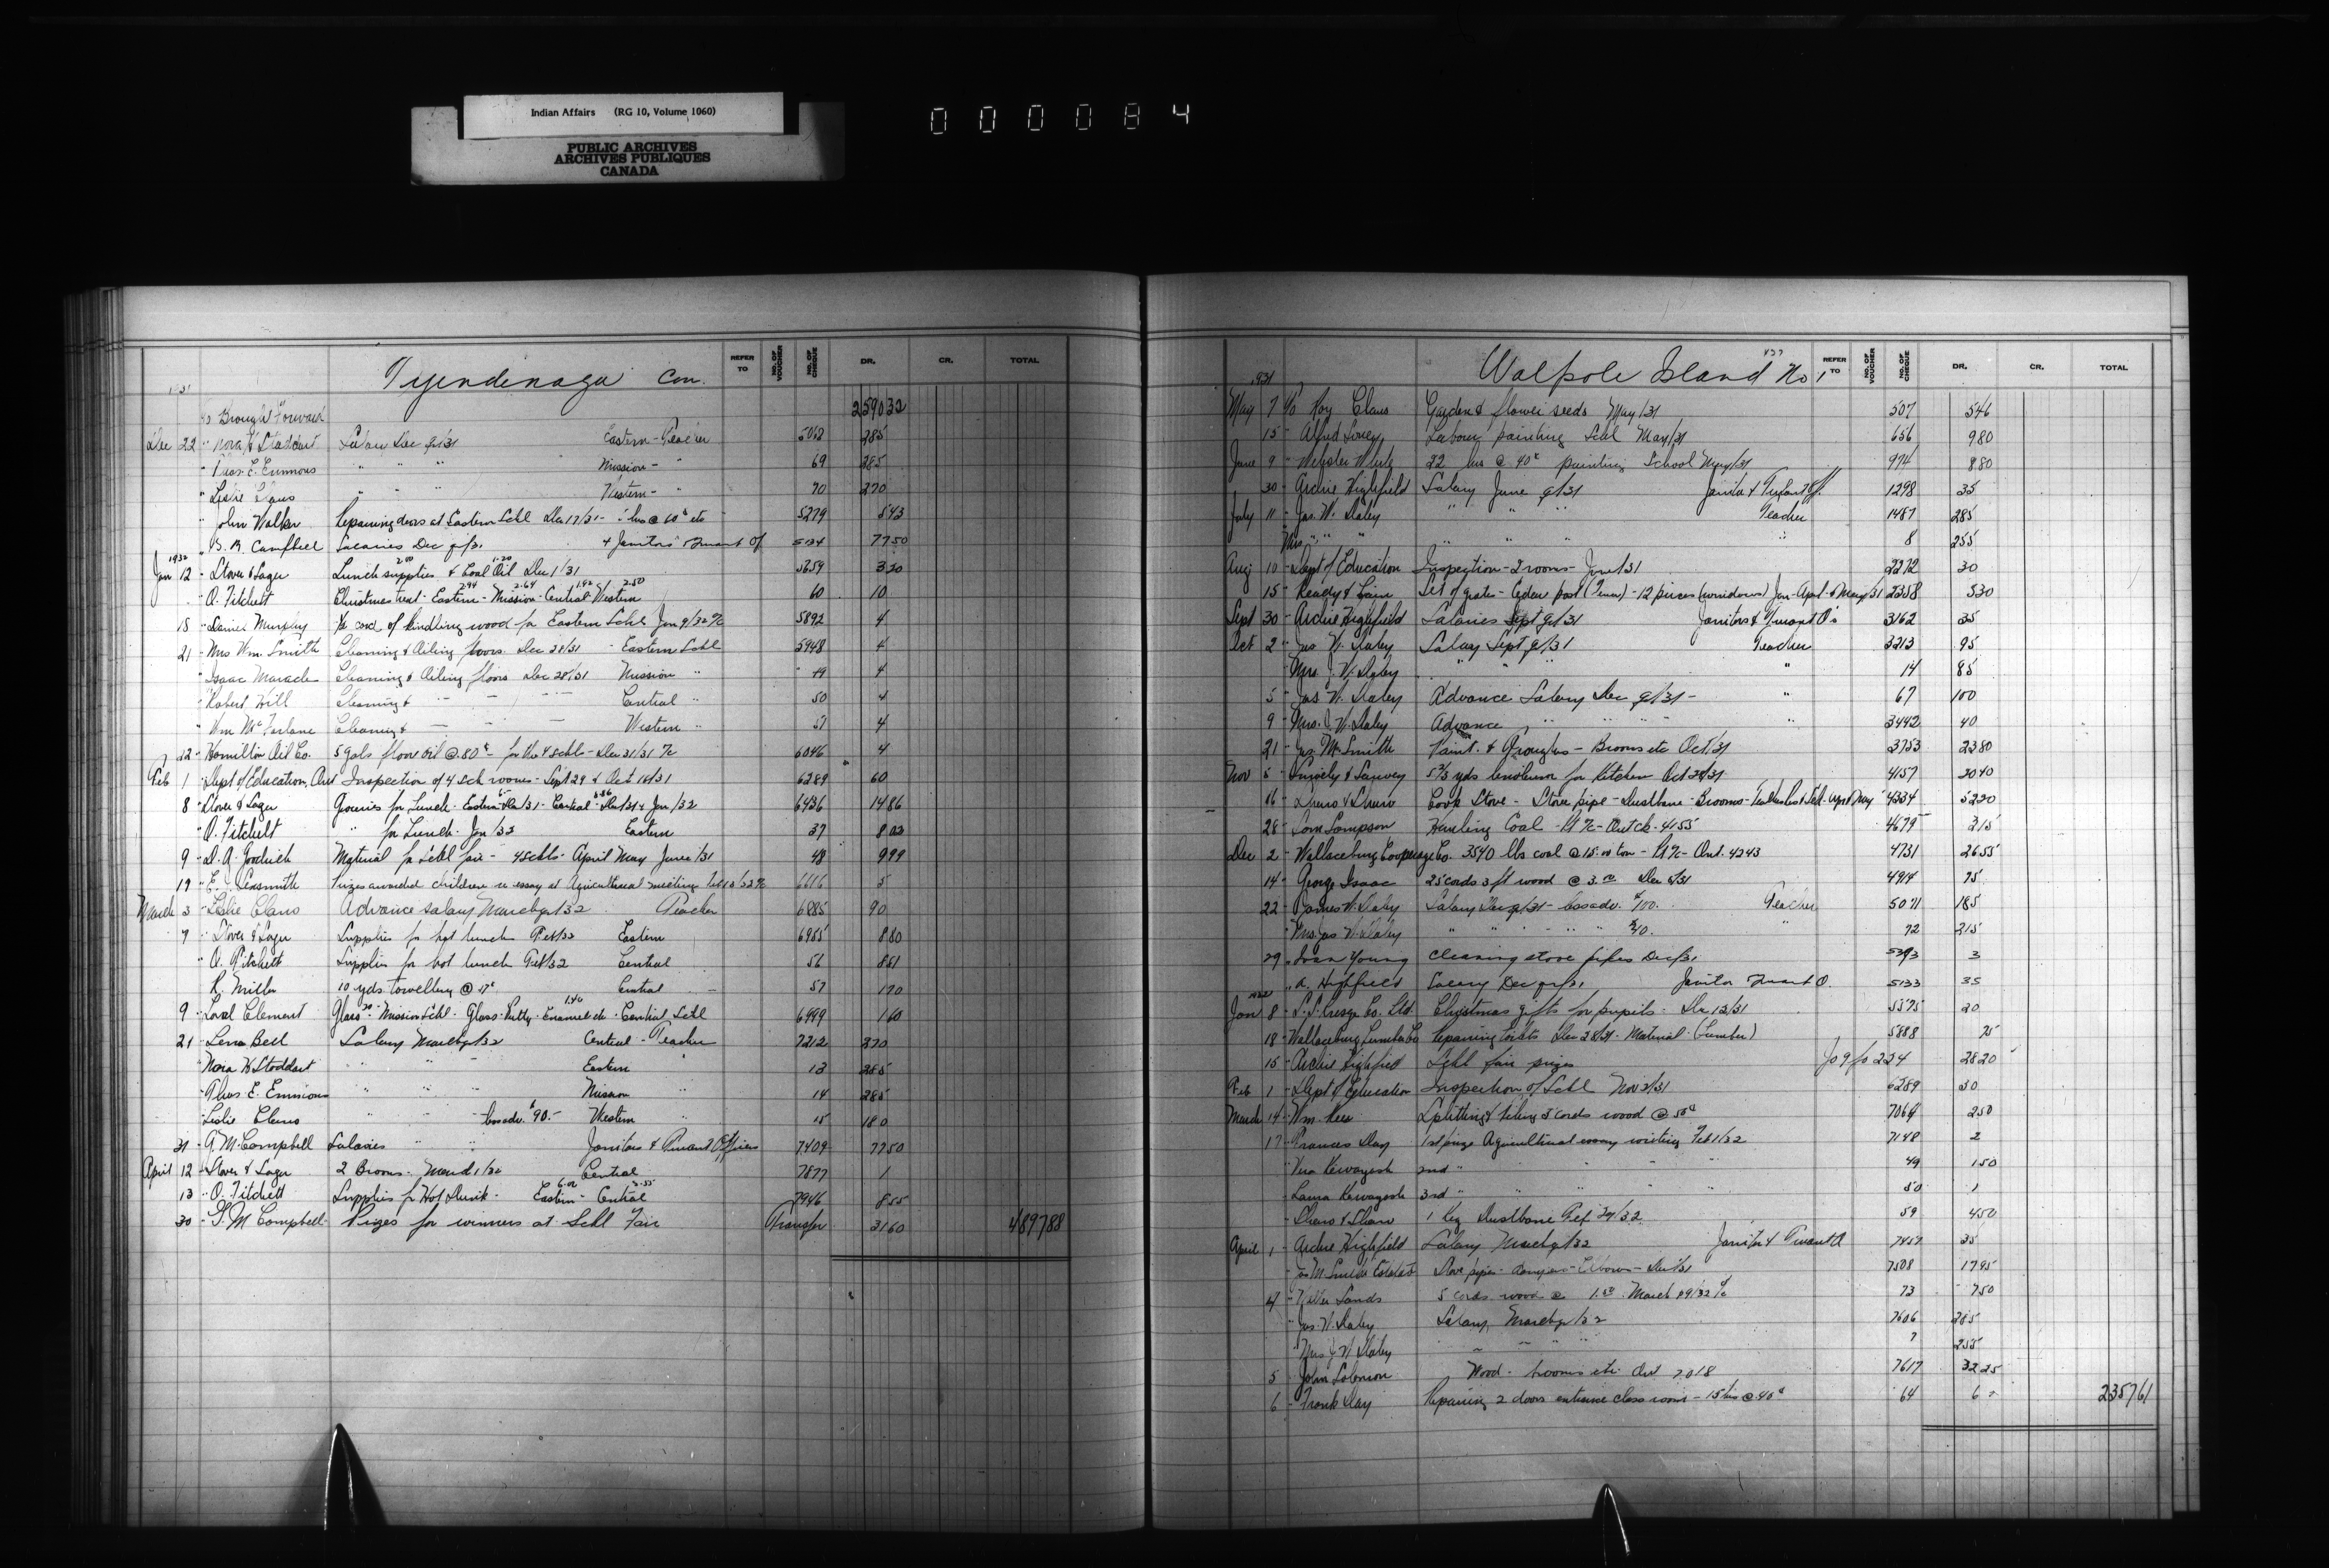 Indian Affairs (RG 10, Volume 1060)
PUBLIC ARCHIVES
ARCHIVES PUBLIQUES
CANADA
000084
Tyendenaga Con.
REFER TO NO. OF VOUCHER NO. OF CHEQUE DR. CR. TOTAL
1931
Brought Forward 259032
Dec 22 " Nora H Stoddart Salary Dec q/31 Eastern - Teacher 5068 285
" Thos. E. Emmons " " " Mission - " 69 285
" Leslie Claus " " " Western - " 70 270
" John Walker Repairing doors at Eastern Schl Dec 17/31 - hrs @ 60¢ etc 5279 543
" Campbell Salaries Dec q/31 + Janitors Truant Of 5134 7750
1932
Jan 12 " Stover & Sager Lunch supplies & Coal Oil Dec 1/31 5659 320
" O. Fitchett Christmas treat - Eastern - Mission - Central - Western 60 10
2.94 2.64 1.92 2.50
15 " Daniel Murphy cord of kindling wood for Eastern Schl Jan 9/32 5892 4
21 " Mrs Wm. Smith Cleaning & Oiling floors Dec 28/31 - Eastern Schl 5948 4
" Isaac Maracle Cleaning & Oiling floors Dec 28/31 Mission " 49 4
" Robert Hill Cleaning & Central " 50 4
" Wm McFarlane Cleaning & Western " 51 4
" Hamilton Oil Co. 5 gals floor oil @ .80¢ - for the 4 schls - Dec 31/31 6046 4
Feb 1 " Dept of Education, Ont Inspection of 4 Sch rooms - Sept 29 & Oct 1931 6289 60
8 " Stover & Sager Groceries for Lunch - Eastern Dec/31 - Central - Dec/31 & Jan/32 6436 1486
" O. Fitchett " for Lunch - Jan/32 Eastern 37 802
9 " Goodrich Material for Schl fair - 4 Schls - April May June/31 48 999
19 " Sexsmith Prizes awarded children essay at Agricultural meeting 6616 5
March 3 " Leslie Claus Advance salary March q/32 Teacher 6885 90
7 " Stover & Sager Supplies for hot lunch Feb/32 Eastern 6955 880
" O. Fitchett Supplies for hot lunch Feb/32 Central 56 861
R. Miller 10 yds towelling @ 17¢ Central 57 170
9 " Clement Glass - Mission Schl - Glass - Putty - Enamel etc - Central Schl 6999 160
21 " Lena Bell Salary March q/32 Central - Teacher 7212 270
" Nora H Stoddart " " " Eastern " 13 285
" Thos E. Emmons " " " Mission " 14 285
Leslie Claus " " " less adv. $90.- Western " 15 180
31 " G. M. Campbell Salaries " " Janitors & Truant Officers 7409 7750
April 12 " Stover & Sager 2 Brooms - March 1/32 Central 7877 1
13 " O. Fitchett Supplies for Hot Lunch - Eastern - Central 7946 855
30 " G. M Campbell Prizes for winners at Schl Fair Transfer 3160 489788
Walpole Island No 1
REFER TO NO. OF VOUCHER NO. OF CHEQUE DR. CR. TOTAL
1931
May 7 To Roy Claus Garden & flower seeds May/31 507 546
15 " Alfred Labour painting Schl May/31 656 980
June 9 " Webster White 22 hrs @ 40¢ painting School May/31 974 880
30 " Archie Highfield Salary June q/31 Janitor & Truant Off. 1298 35
July 11 " Jas. W. Daley " " " Teacher 1487 285
Mrs " " " " " " " 8 255
Aug 10 " Dept of Education Inspection - 2 rooms - June/31 2272 30
15 " Set of grates - Cedar post - 12 pieces (windows) Jan - April & May/31 2358 530
Sept 30 " Archie Highfield Salaries Sept q/31 Janitors & Truant O's 3162 35
Oct 2 " Jas W. Daley Salary Sept q/31 Teacher 3213 95
Mrs. J. W. Daley " " " " 14 85
5 " Jas W. Daley Advance Salary Dec q/31 - " 67 100
9 " Mrs. J. W. Daley Advance " " " " 3442 40
21 " Jas. M. Smith Paint - Brooms etc Oct/31 3753 2380
Nov 5 " yds linoleum for Kitchen Oct 28/31 4157 2040
16 " Shaw & Shaw Cook Stove - Stove pipe - Dustbane - Brooms - 4334 5220
28 " Tom Sampson Hauling Coal - Out ck. 4155 4679 315
Dec 2 " Wallaceburg Cooperage Co. 3540 lbs coal @ 15.00 ton - Out. 4243 4731 2655
14 " George Isaac 25 cords 3 ft wood @ 3.00 Dec 8/31 4914 75
22 " James W. Daley Salary Dec q/31 - less adv. $100. Teacher 5071 185
Mrs Jas W. Daley " " " " " $40. " 72 215
29 " Young Cleaning stove pipes Dec/31 5293 3
" A. Highfield Salary Dec q/31 Janitor Truant O. 5133 35
1932
Jan 8 " S. S. Kresge Co. Ltd. Christmas gifts for pupils - Dec 12/31 5575 20
18 " Wallaceburg Lumber Co Repairing toilets Dec 28/31 - Material (Lumber) 5888 75
15 " Archie Highfield Schl fair prizes Jo 9 fo 224 2820
Feb 1 " Dept of Education Inspection of Schl Nov 3/31 6289 30
March 14 " Wm. Splitting & piling 5 cords wood @ 50¢ 7064 250
17 " Frances Day 1st prize Agricultural essay writing Feb 1/32 7148 2
Vera Kewayosh 2nd " " " " 49 150
Laura Kewayosh 3rd " " " " 50 1
" Shaw & Shaw 1 keg Dustbane Feb 29/32 59 450
April 1 " Archie Highfield Salary March q/32 Janitor & Truant O 7457 35
" Jas M. Smith Estate Stove pipes - dampers - Elbows - Dec/31 7508 1795
4 " Sands 5 cords wood @ 1.50 March 29/32 73 750
" Jas. W. Daley Salary March q/32 7606 285
" Mrs J W Daley " " " 7 255
5 " John Solomon Wood - brooms etc Out 7018 7617 3225
6 " Frank Day Repairing 2 doors entrance class room - 15 hrs @ 40¢ 64 6 235761